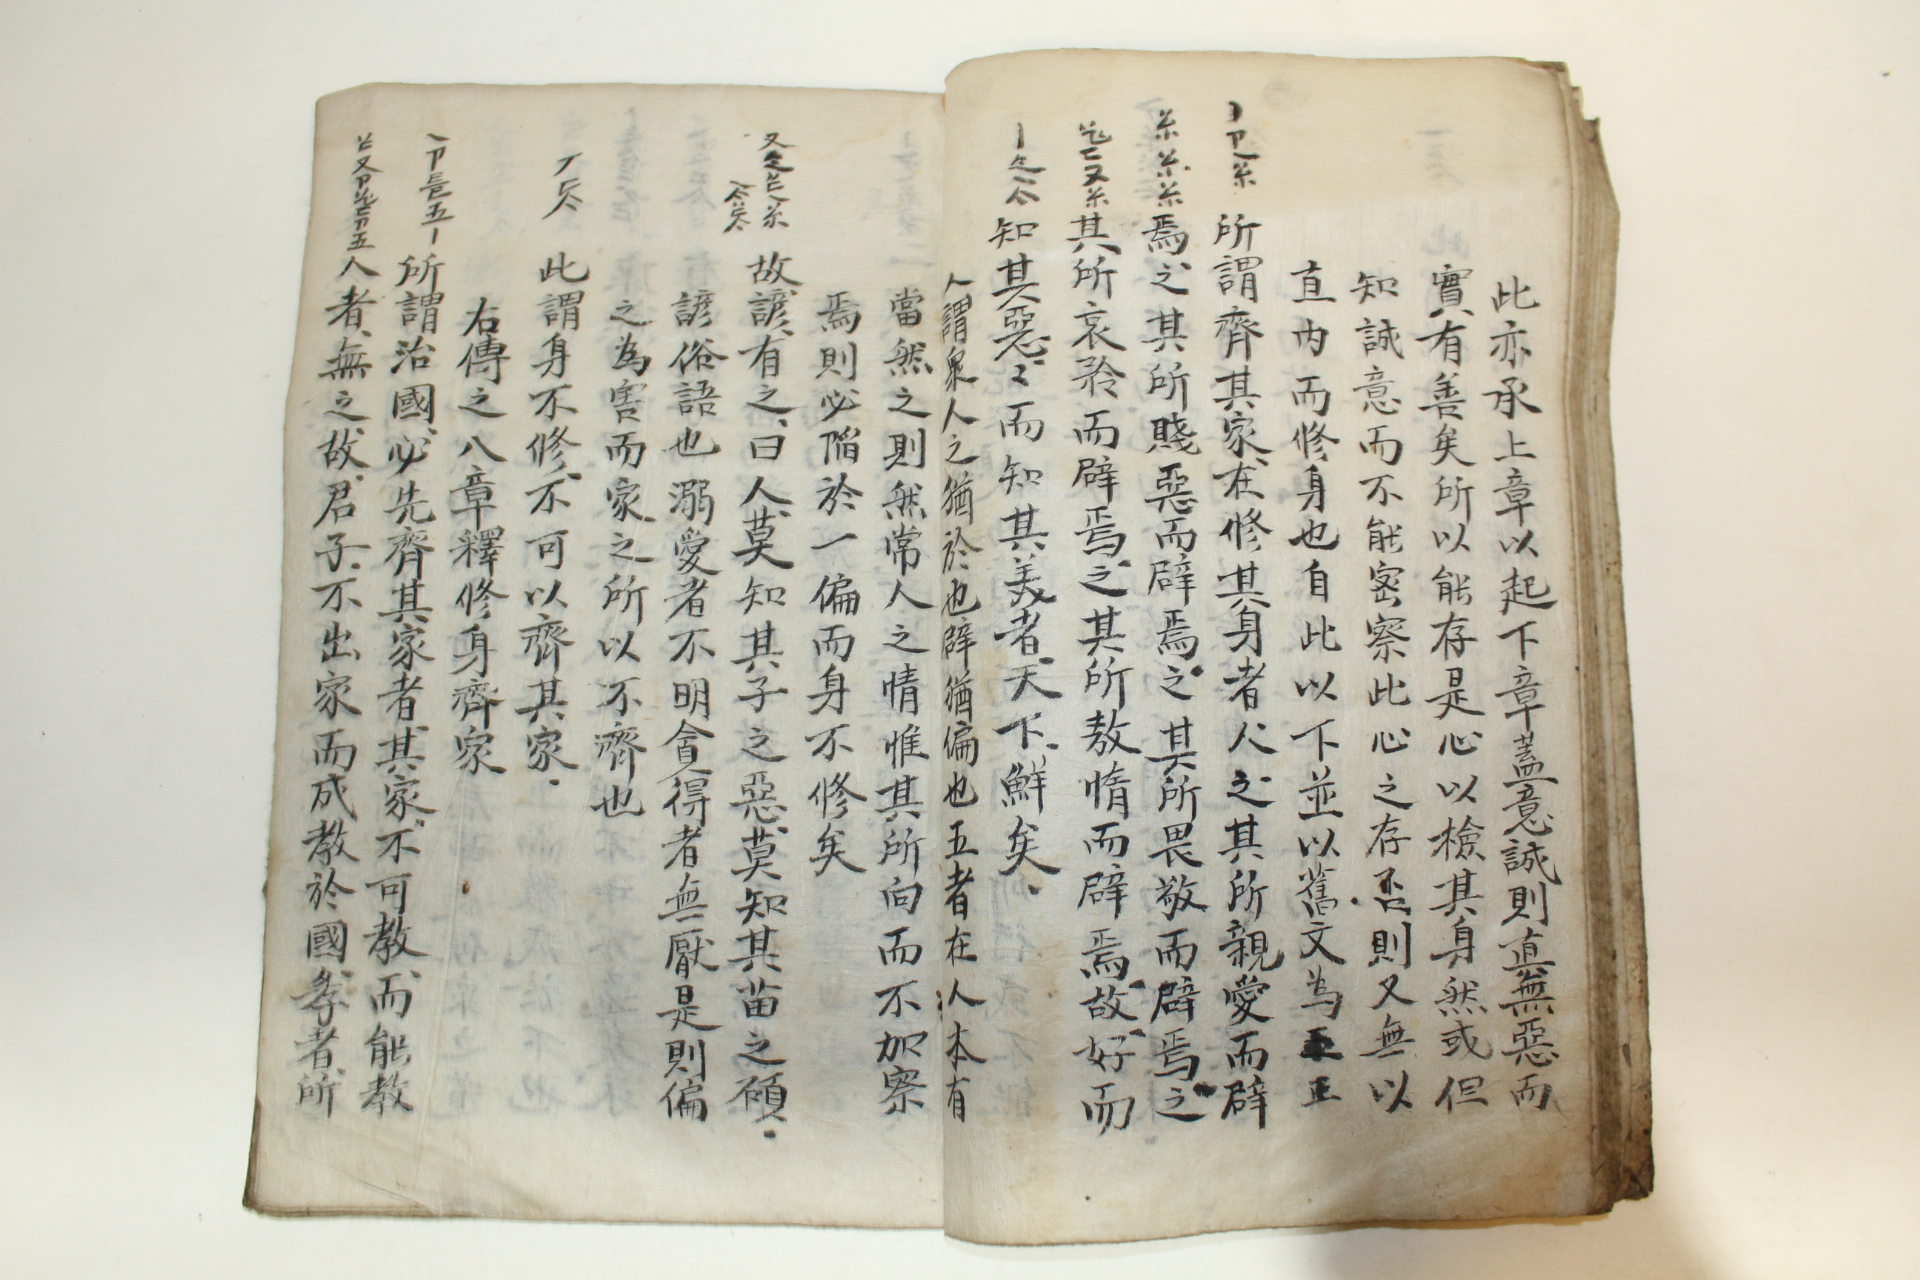 此亦承上章以起下章蓋意誠則真無惡而
實有善矣所以能存是心以檢其身然或但
知誠意而不能密察此心之存否則又無以
直內而修身也自此以下並以舊文為正
所謂齊其家在修其身者人之其所親愛而辟
焉之其所賤惡而辟焉之其所畏敬而辟焉之
其所哀矜而辟焉之其所敖惰而辟焉故好而
知其惡〻而知其美者天下鮮矣
人謂衆人之猶於也辟猶偏也五者在人本有
當然之則然常人之情惟其所向而不加察
焉則必陷於一偏而身不修矣
故諺有之曰人莫知其子之惡莫知其苗之碩
諺俗語也溺愛者不明貪得者無厭是則偏
之為害而家之所以不齊也
此謂身不修不可以齊其家
右傳之八章釋修身齊家
所謂治國必先齊其家者其家不可教而能教
人者無之故君子不出家而成教於國孝者所